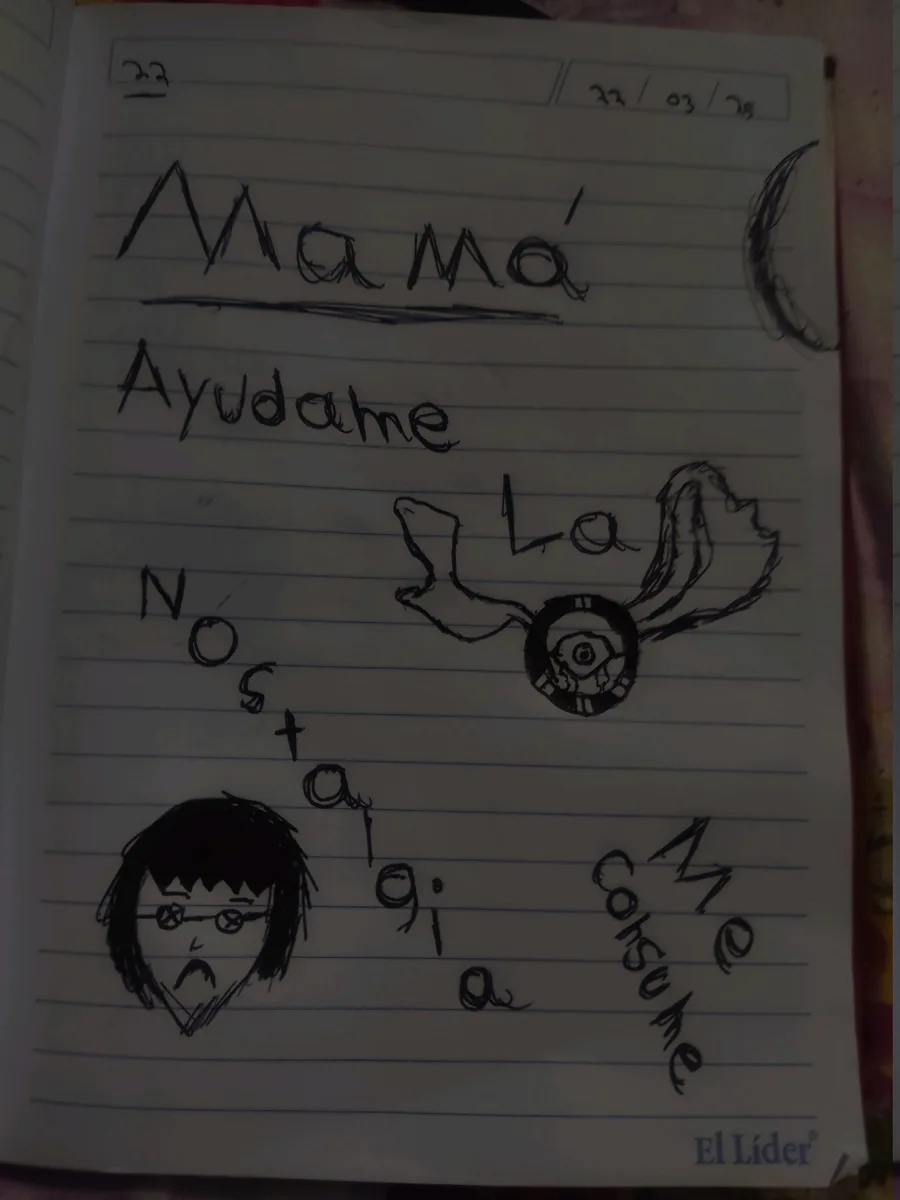 22
22 / 03 / 25
Mamá
Ayudame
La
Nóstalgia
Me
consume
El Líder